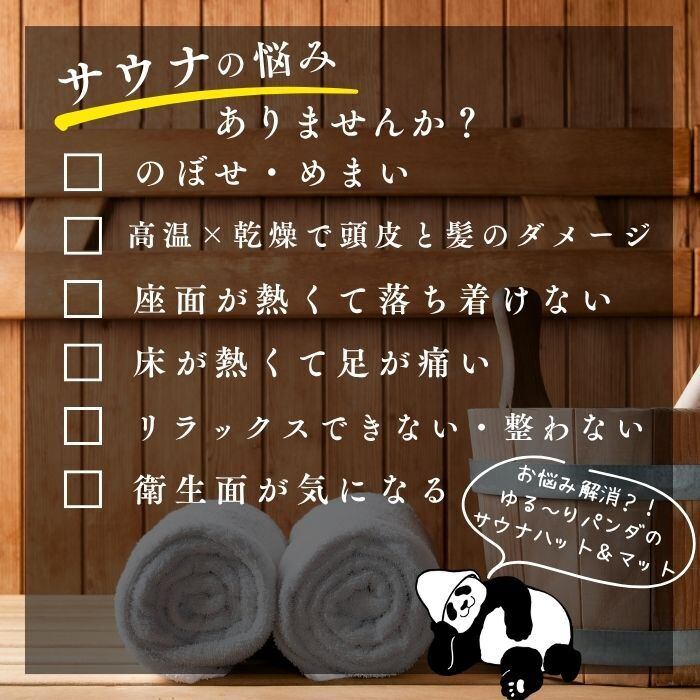 サウナの悩み
ありませんか?
のぼせ・めまい
高温×乾燥で頭皮と髪のダメージ
座面が熱くて落ち着けない
床が熱くて足が痛い
リラックスできない・整わない
衛生面が気になる
お悩み解消?!
ゆる〜りパンダの
サウナハット&マット